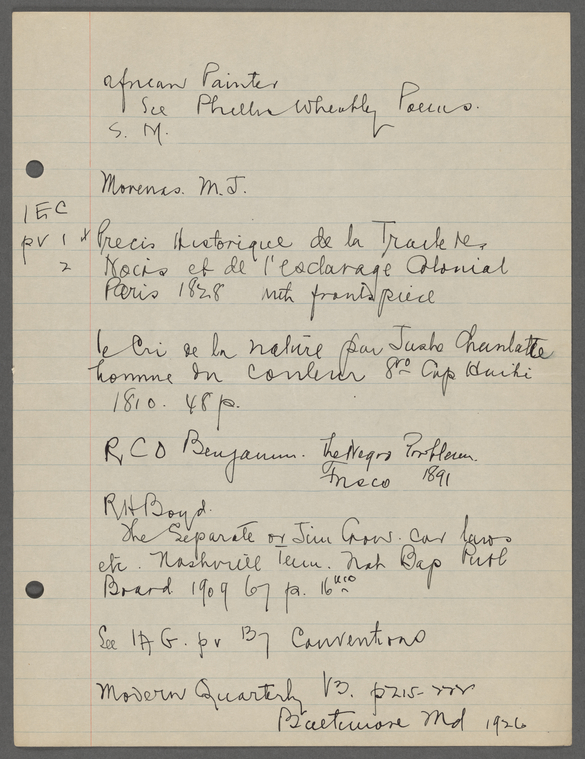 African Painter
See Phillis Wheatly Poems.
S. M.
Morenas. M. J.
IEC
pv 1 + Precis Historique de la Traite des
2 Nocirs et de l'esclavage Colonial
Paris 1828 with frontspiece
le Cri de la nature par Justo Chanlatte
homme du couleur 8vo Cap Haiti
1810. 48 p.
R C O Benjamin. The Negro Problem.
Frisco 1891
R H Boyd.
The Separate or Jim Crow. car laws
etc. Nashville Tenn. Nat Bap Publ
Board 1909 67 p. 16mo
See IAG. pv 137 Conventions
Modern Quarterly V3. p215-
Baltimore Md 1926